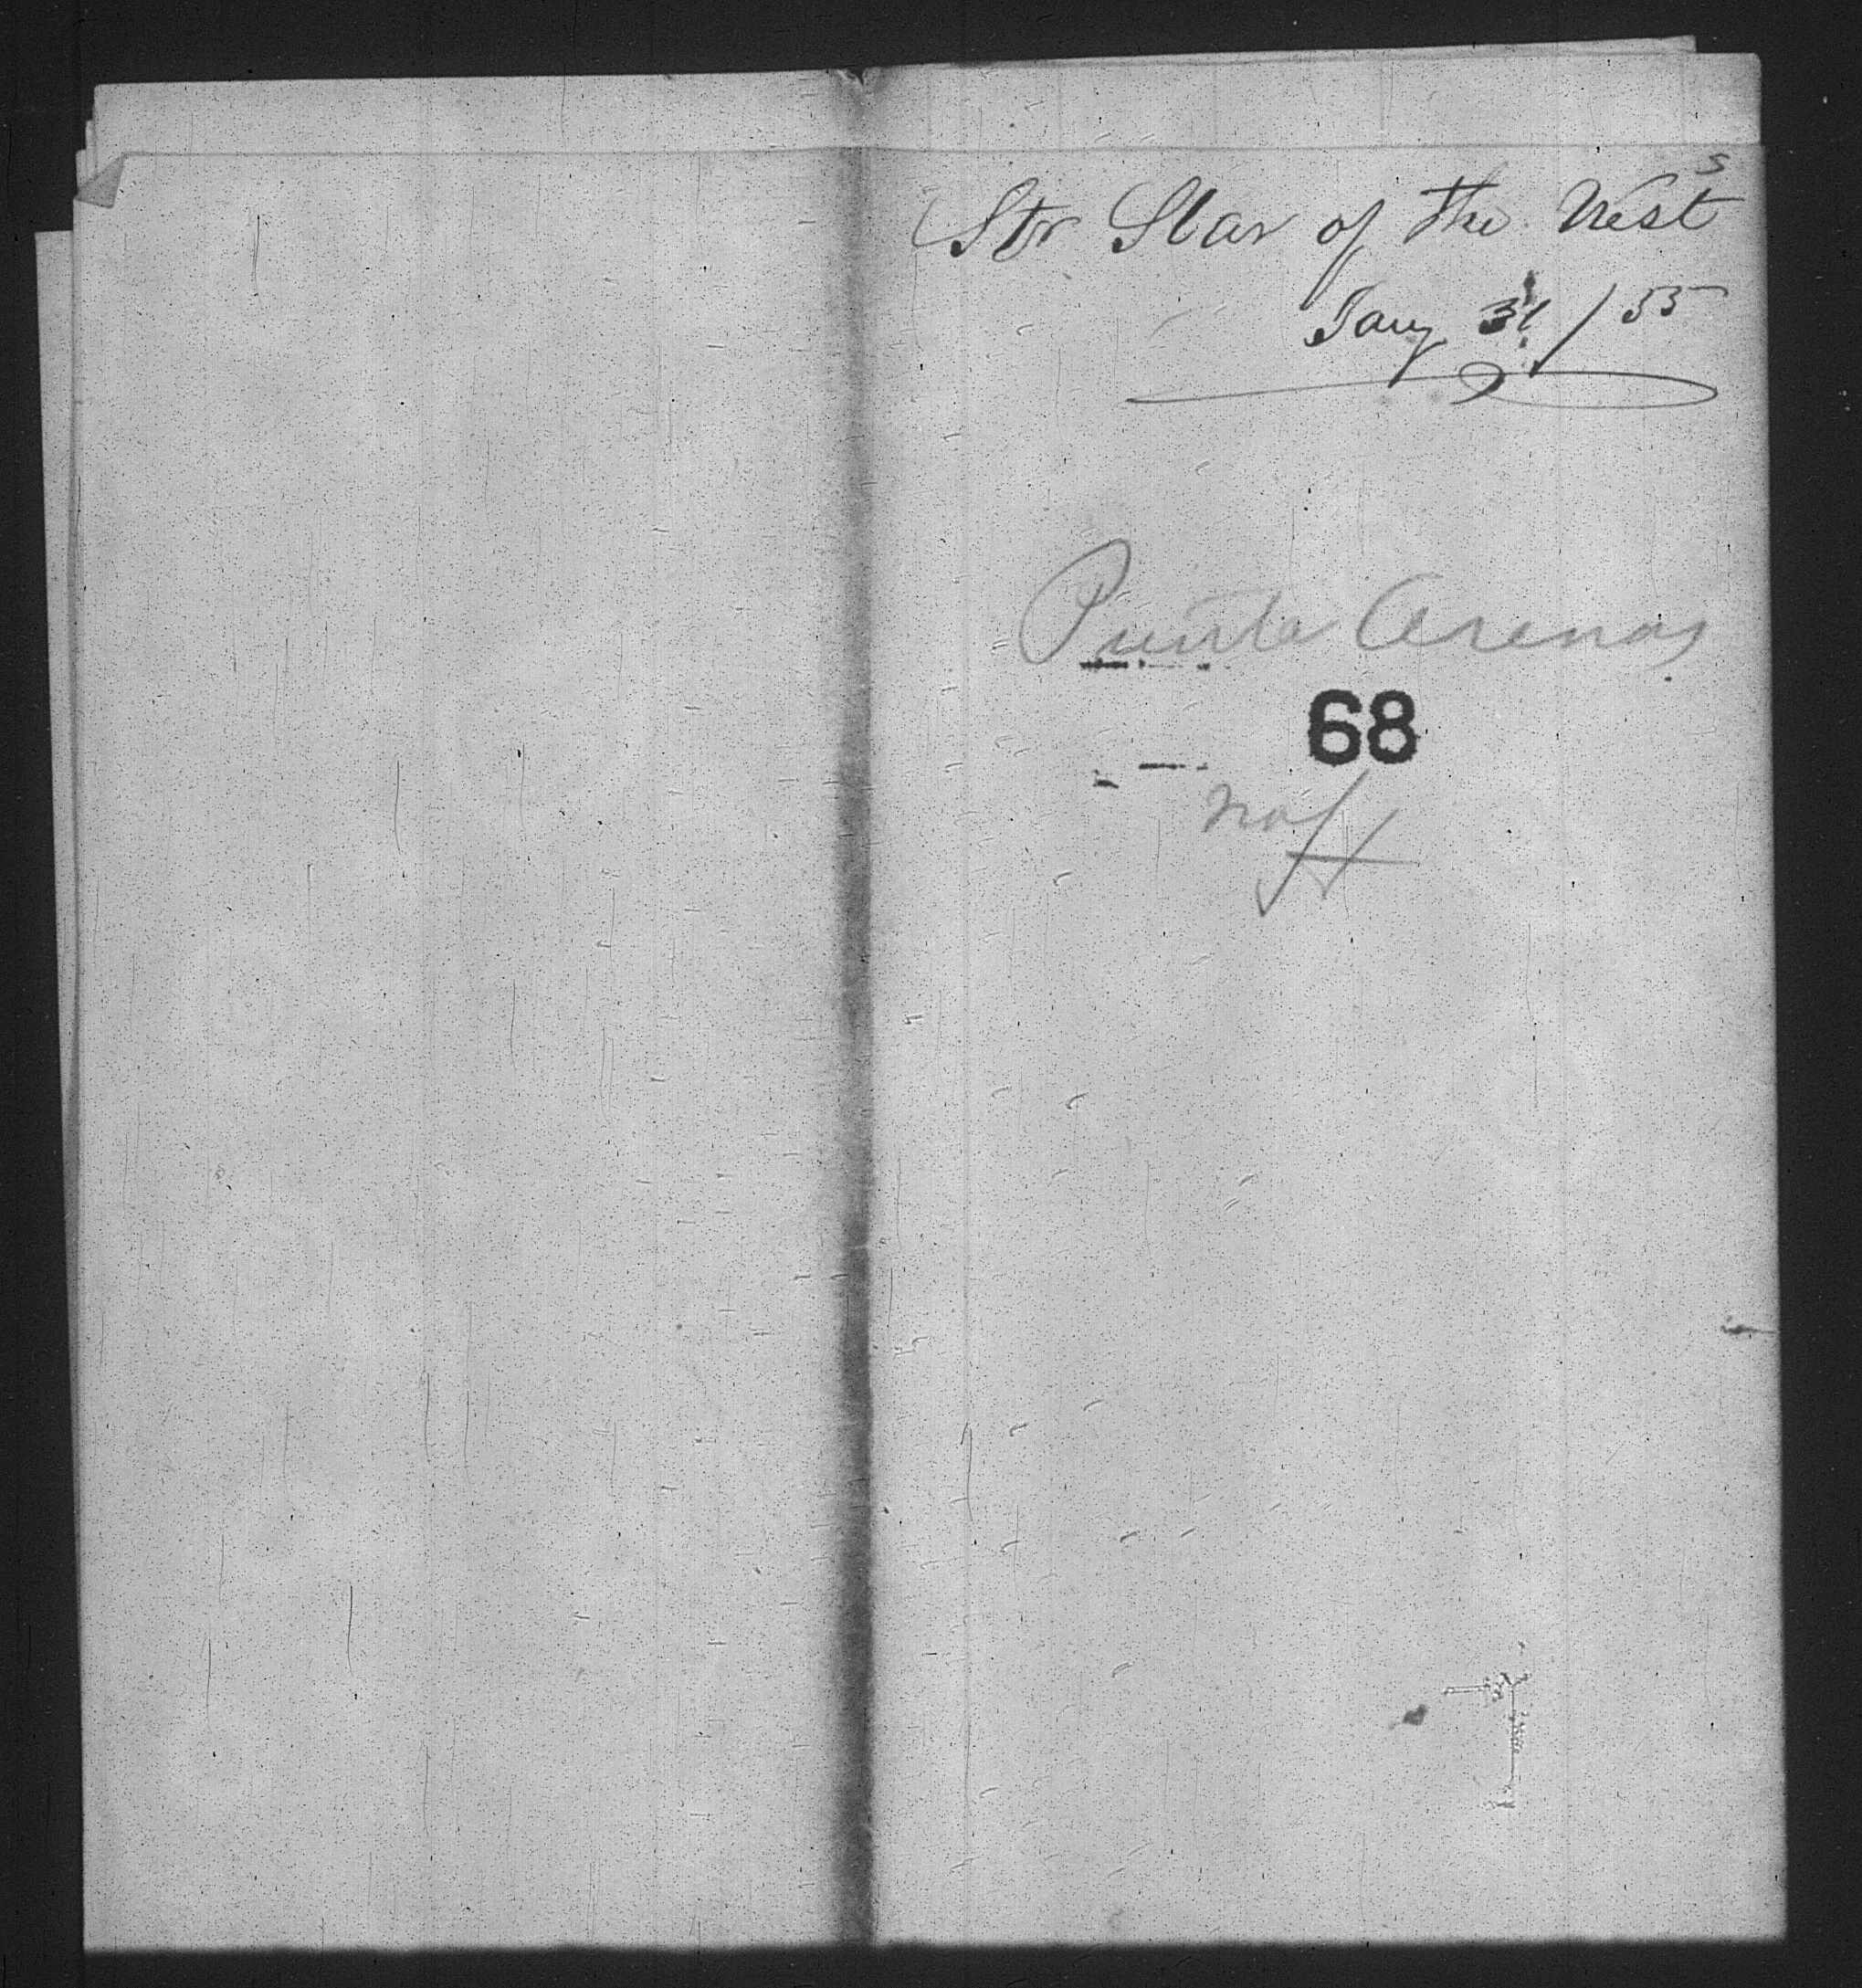 s
Str Star of the West
Jany 31 / 55
Punta Arenas
68